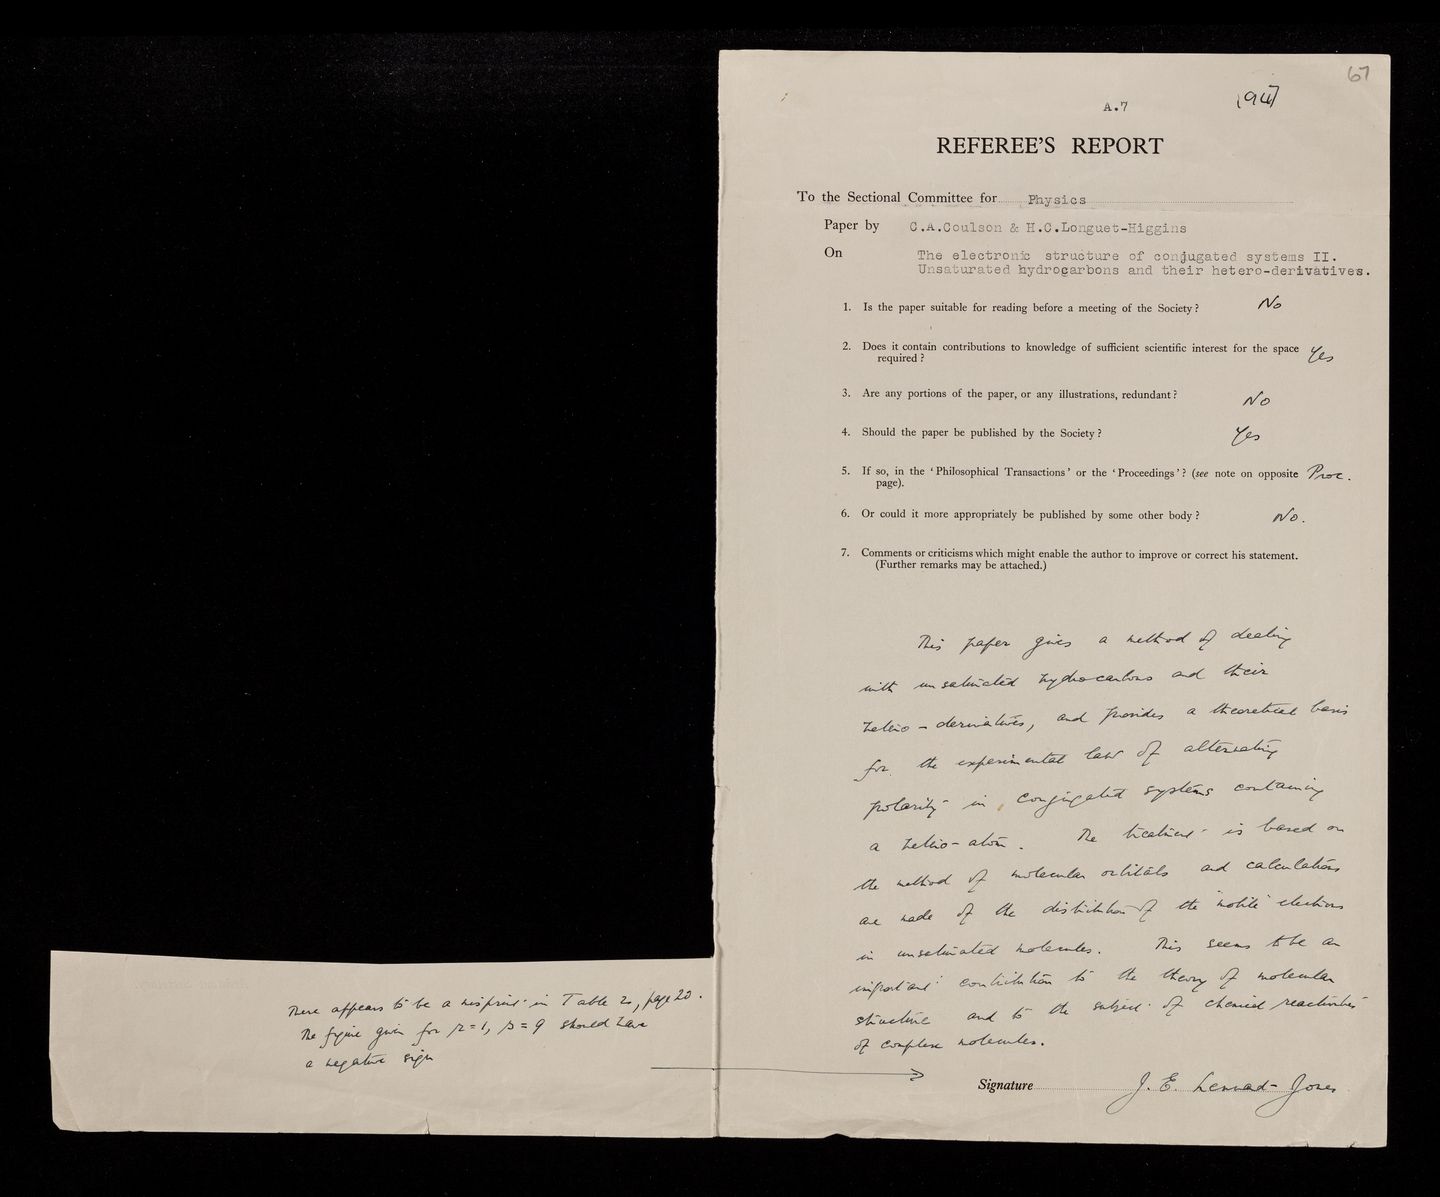 67
A.7
1947
REFEREE'S REPORT
To the Sectional Committee for Physics
Paper by C.A.Coulson & H.C.Longuet-Higgins
On The electronic structure of conjugated systems II.
Unsaturated hydrocarbons and their hetero-derivatives.
1. Is the paper suitable for reading before a meeting of the Society? No
2. Does it contain contributions to knowledge of sufficient scientific interest for the space
required? Yes
3. Are any portions of the paper, or any illustrations, redundant? No
4. Should the paper be published by the Society? Yes
5. If so, in the 'Philosophical Transactions' or the 'Proceedings'? (see note on opposite
page). Proc.
6. Or could it more appropriately be published by some other body? No.
7. Comments or criticisms which might enable the author to improve or correct his statement.
(Further remarks may be attached.)
This paper gives a method of dealing
with unsaturated hydro-carbons and their
hetero-derivatives, and provides a theoretical basis
for the experimental law of alternating
polarity in conjugated systems containing
a hetero-atom. The treatment is based on
the method of molecular orbitals and calculations
are made of the distribution of the "mobile" electrons
in unsaturated molecules. This seems to be an
important contribution to the theory of molecular
structure and to the subject of chemical reactivities
of complex molecules.
There appears to be a misprint in Table 2, page 20.
The figure given for r = 1, s = 9 should have
a negative sign
Signature J. E. Lennard-Jones